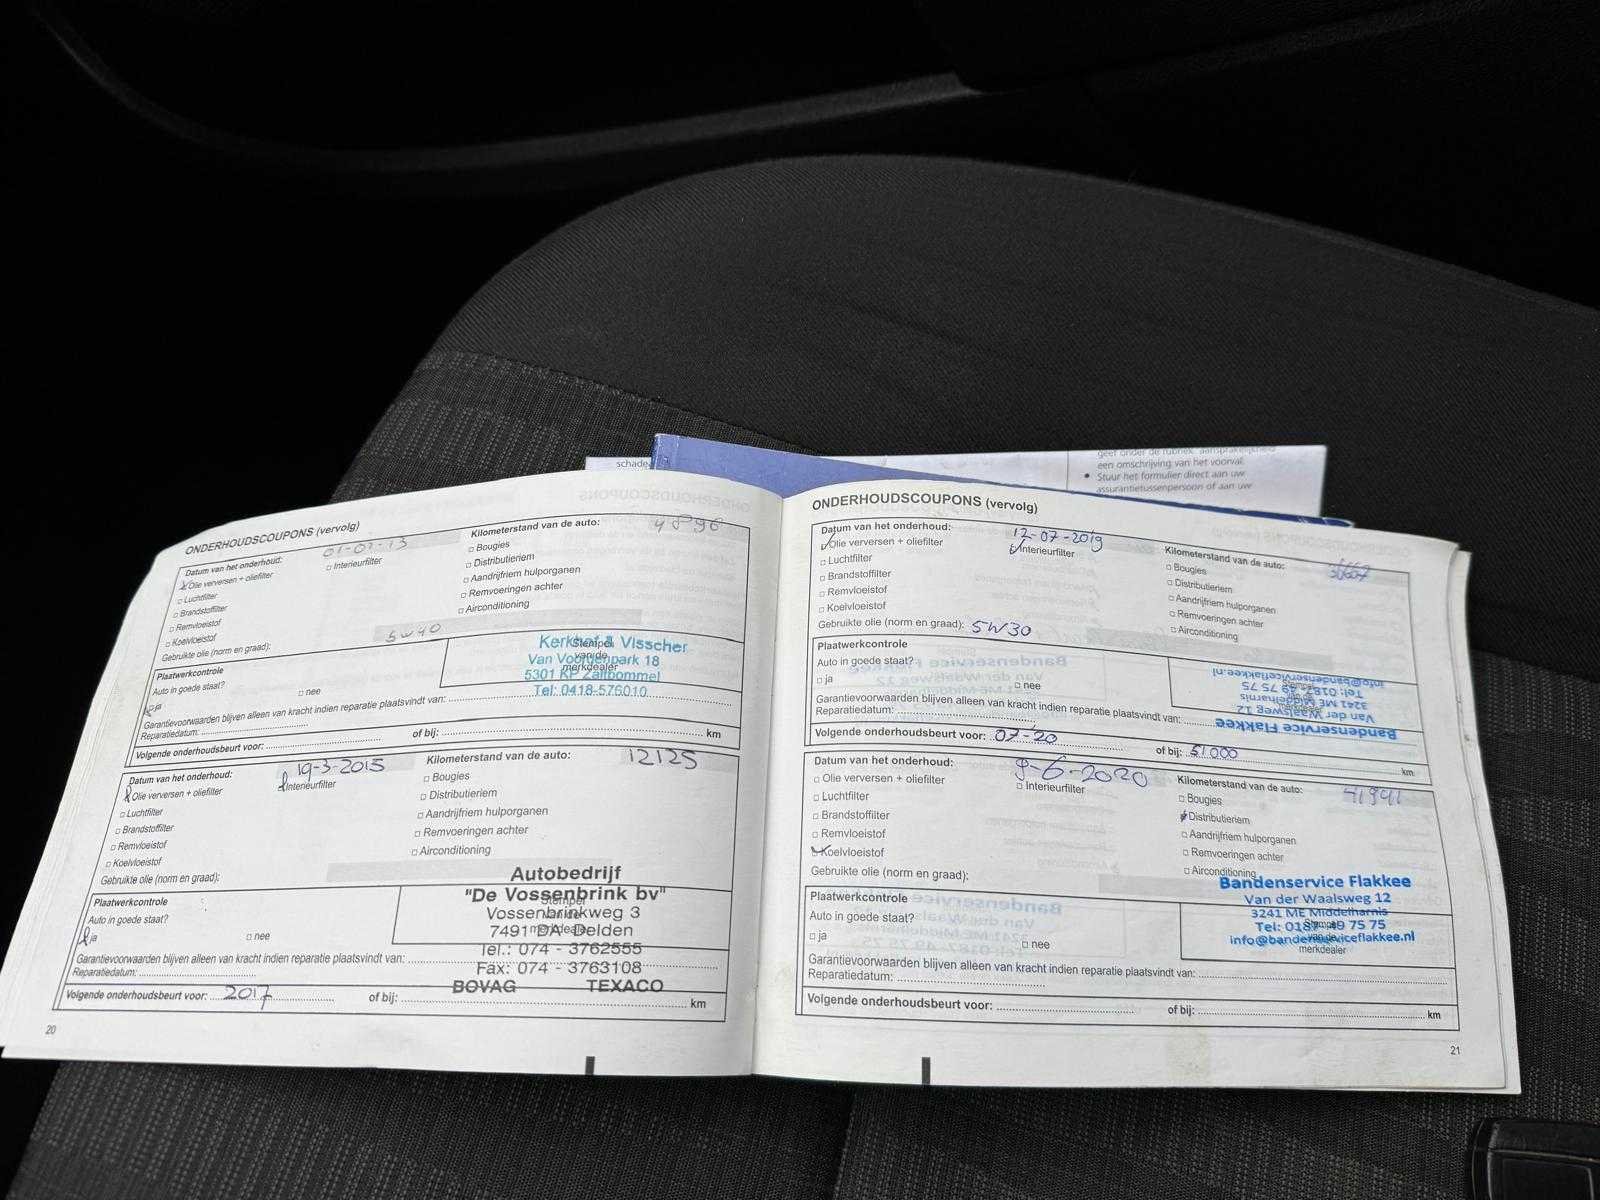 schade
geef onder de rubriek 'aansprakelijkheid
een omschrijving van het voorval.
• Stuur het formulier direct aan uw
assurantietussenpersoon of aan uw
ONDERHOUDSCOUPONS (vervolg)
Datum van het onderhoud: 01-07-13
Kilometerstand van de auto: 4896
Olie verversen + oliefilter
Interieurfilter
Bougies
Luchtfilter
Distributieriem
Brandstoffilter
Aandrijfriem hulporganen
Remvloeistof
Remvoeringen achter
Koelvloeistof
Airconditioning
Gebruikte olie (norm en graad): 5W40
Plaatwerkcontrole
Auto in goede staat?
ja
nee
Kerkhof & Visscher
Van Voordenpark 18
5301 KP Zaltbommel
Tel: 0418-576010
Stempel
van de
merkdealer
Garantievoorwaarden blijven alleen van kracht indien reparatie plaatsvindt van:
Reparatiedatum:
Volgende onderhoudsbeurt voor: of bij: km
Datum van het onderhoud: 19-3-2015
Kilometerstand van de auto: 12125
Olie verversen + oliefilter
Interieurfilter
Bougies
Luchtfilter
Distributieriem
Brandstoffilter
Aandrijfriem hulporganen
Remvloeistof
Remvoeringen achter
Koelvloeistof
Airconditioning
Gebruikte olie (norm en graad):
Plaatwerkcontrole
Auto in goede staat?
ja
nee
Autobedrijf
"De Vossenbrink bv"
Vossenbrinkweg 3
7491 DA Delden
Tel.: 074 - 3762555
Fax: 074 - 3763108
BOVAG TEXACO
Stempel
van de
merkdealer
Garantievoorwaarden blijven alleen van kracht indien reparatie plaatsvindt van:
Reparatiedatum:
Volgende onderhoudsbeurt voor: 2017 of bij: km
20
ONDERHOUDSCOUPONS (vervolg)
Datum van het onderhoud: 12-07-2019
Kilometerstand van de auto:
Olie verversen + oliefilter
Interieurfilter
Bougies
Luchtfilter
Distributieriem
Brandstoffilter
Aandrijfriem hulporganen
Remvloeistof
Remvoeringen achter
Koelvloeistof
Airconditioning
Gebruikte olie (norm en graad): 5W30
Plaatwerkcontrole
Auto in goede staat?
ja
nee
Bandenservice Flakkee
Van der Waalsweg 12
3241 ME Middelharnis
Tel: 0187- 49 75 75
info@bandenserviceflakkee.nl
Stempel
van de
merkdealer
Garantievoorwaarden blijven alleen van kracht indien reparatie plaatsvindt van:
Reparatiedatum:
Volgende onderhoudsbeurt voor: 07-20 of bij: 51000 km
Datum van het onderhoud: 9-6-2020
Kilometerstand van de auto: 41941
Olie verversen + oliefilter
Interieurfilter
Bougies
Luchtfilter
Distributieriem
Brandstoffilter
Aandrijfriem hulporganen
Remvloeistof
Remvoeringen achter
Koelvloeistof
Airconditioning
Gebruikte olie (norm en graad):
Plaatwerkcontrole
Auto in goede staat?
ja
nee
Bandenservice Flakkee
Van der Waalsweg 12
3241 ME Middelharnis
Tel: 0187- 49 75 75
info@bandenserviceflakkee.nl
Stempel
van de
merkdealer
Garantievoorwaarden blijven alleen van kracht indien reparatie plaatsvindt van:
Reparatiedatum:
Volgende onderhoudsbeurt voor: of bij: km
21